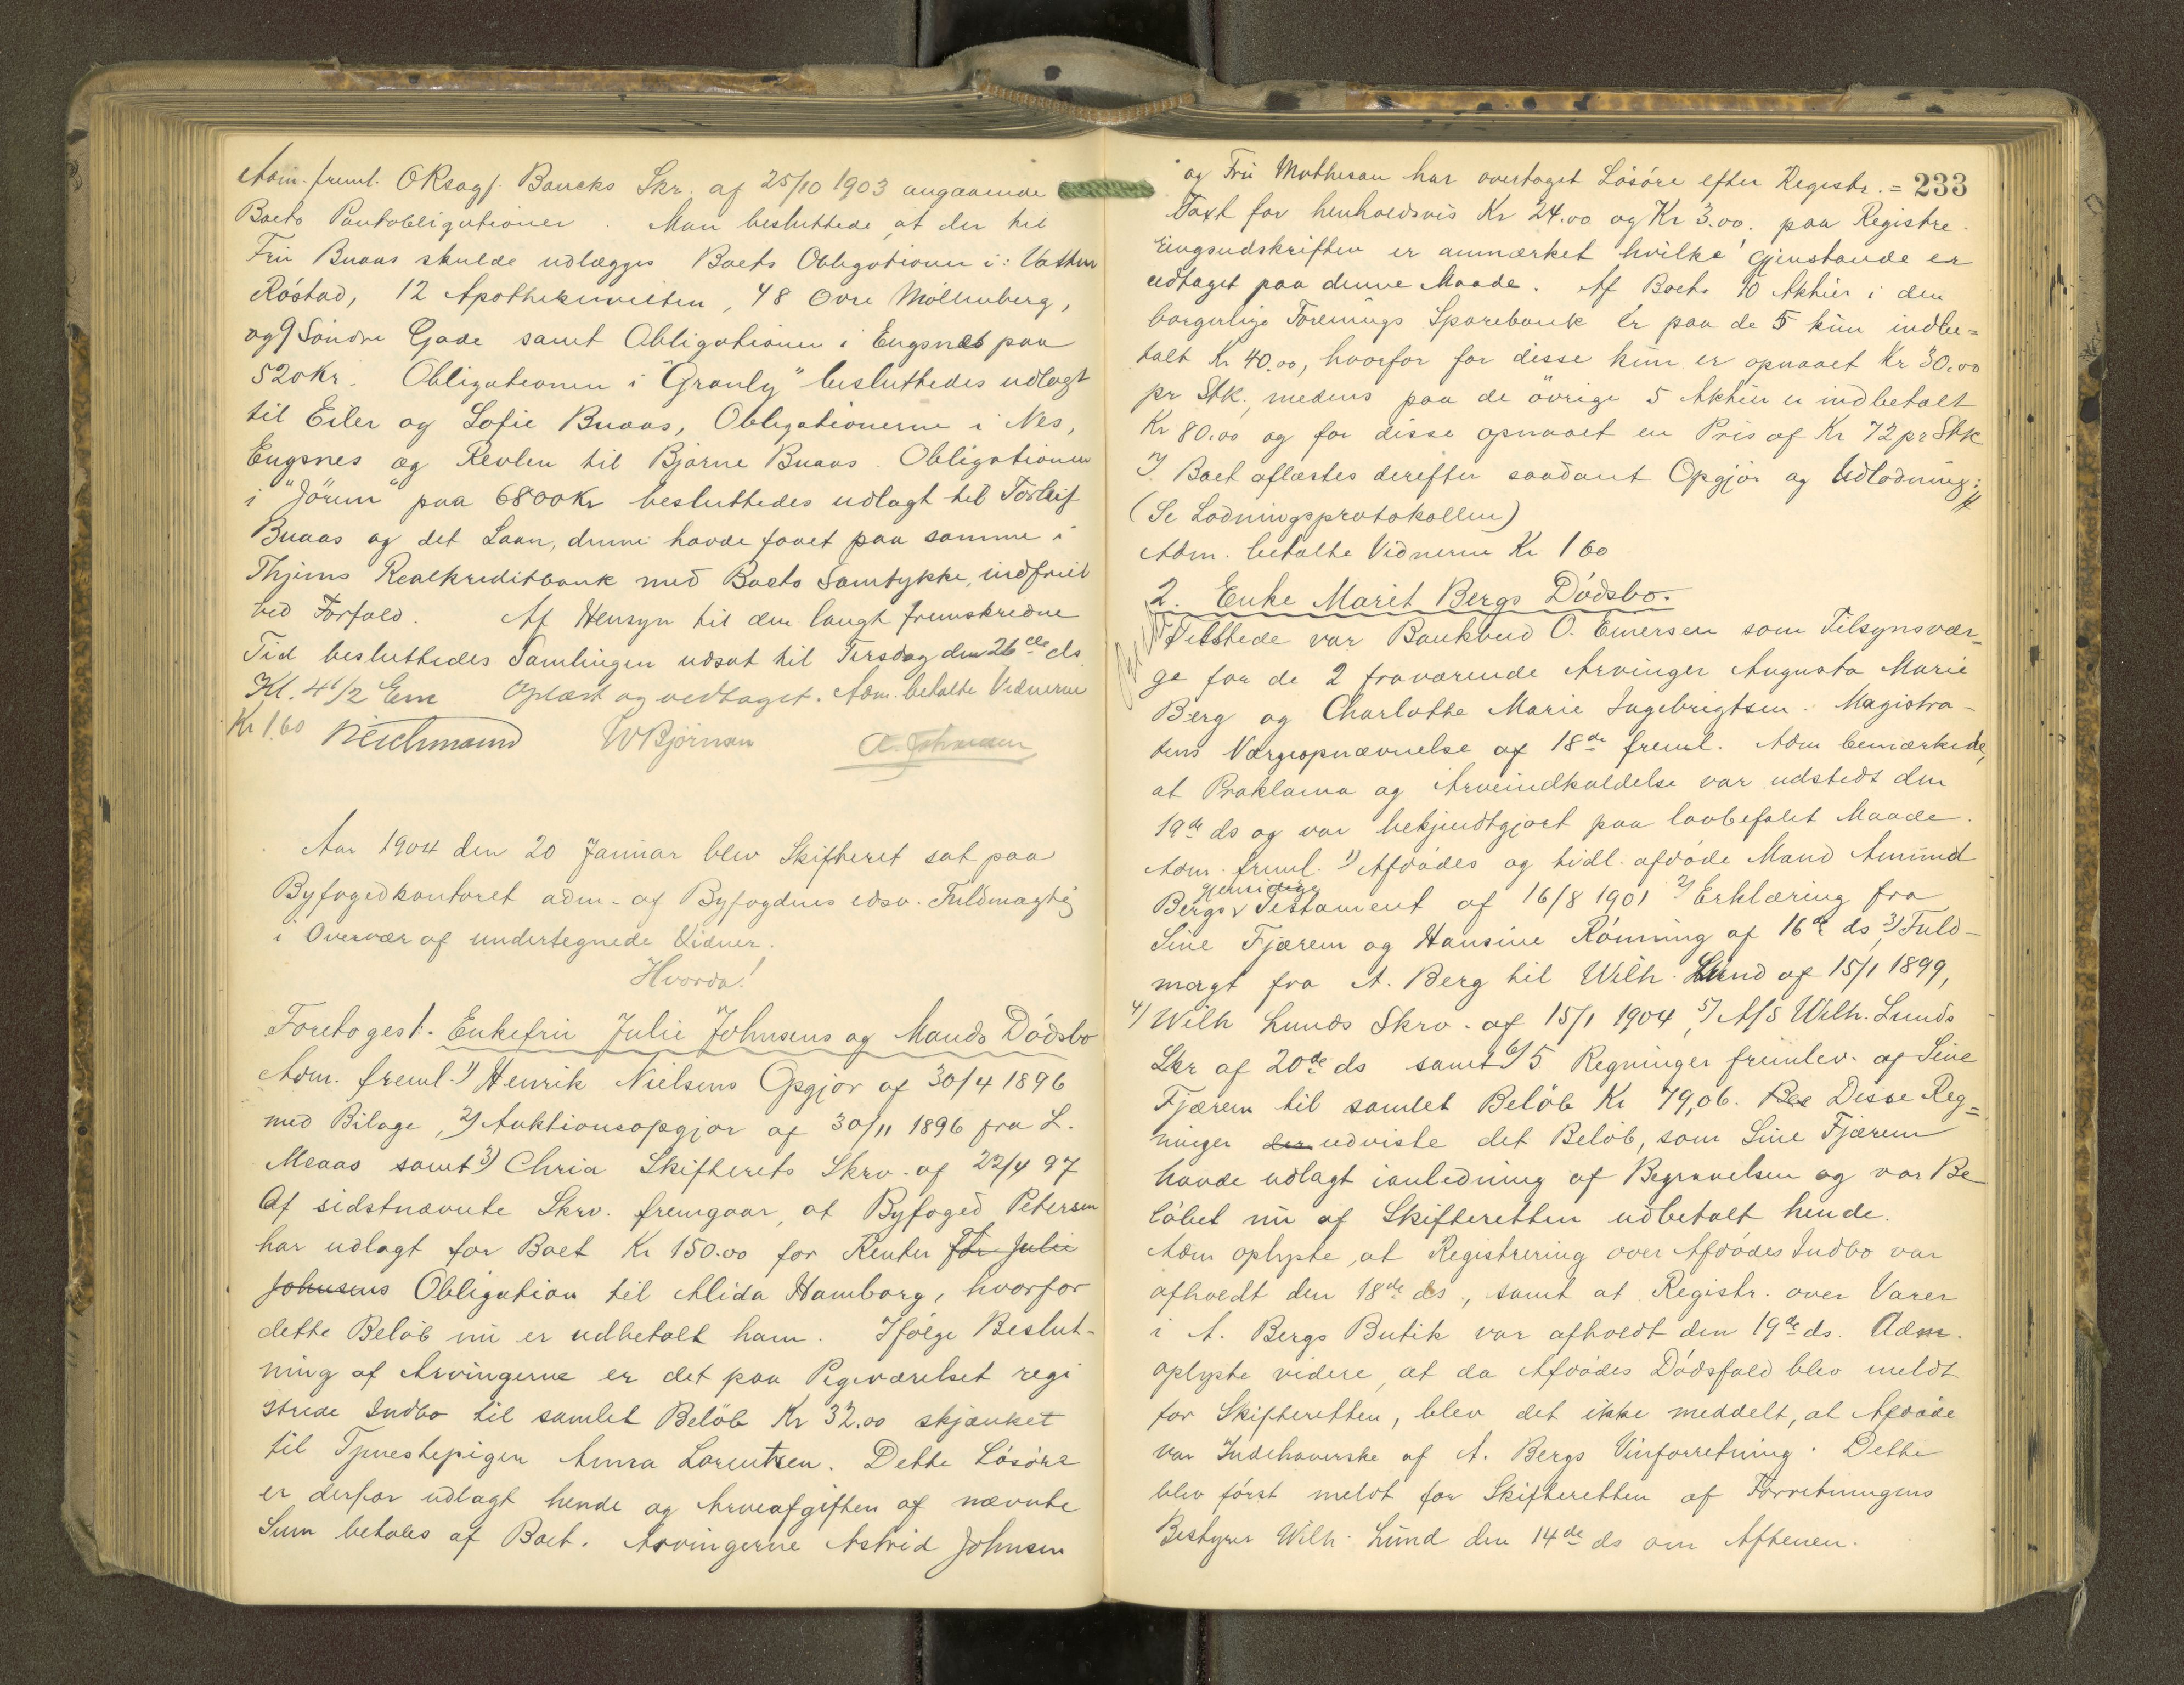 Adm. freml. ORsagf. Baucks Skr. af 25/10 1903 angaaende
Boets Pantobligationer. Man besluttede, at der til
Fru Buaas skulde udlægges Boets Obligationer i: Vatten
Röstad, 12 Apothekerveiten, 48 Øvre Möllenberg,
og 9 Söndre Gade samt Obligationen i Engsnes paa
520 Kr. Obligationen i "Granly" besluttedes udlagt
til Eiler og Sofie Buaas, Obligationerne i Nes,
Engsnes og Revlen til Bjarne Buaas. Obligationen
i "Jörum" paa 6800 Kr besluttedes udlagt til Torleif
Buaas og det Laan, denne havde faaet paa samme i
Thjems Realkreditbank med Boets Samtykke, indfriet
ved Forfald. Af Hensyn til den langt fremskredne
Tid besluttedes Samlingen udsat til Tirsdag den 26de ds
Kl. 4 1/2 Em Oplæst og vedtaget. Adm. betalte Vidnerne
Kr 1.60 Reichmann W Björnan A. Johansen
Aar 1904 den 20 Januar blev Skifteret sat paa
Byfogedkontoret adm. af Byfogdens edsv. Fuldmægtig
i Overvær af undertegnede Vidner.
Hvorda!
Foretoges 1. Enkefru Julie Johnsens og Mands Dödsbo
Adm. freml. 1) Henrik Nielsens Opgjör af 30/4 1896
med Bilage, 2) Auktionsopgjör af 30/11 1896 fra L.
Meaas samt 3) Chria Skifterets Skrv. af 22/4 97
Af sidstnævnte Skrv. fremgaar, at Byfoged Petersen
har udlagt for Boet Kr 150.00 for Renter for Julie
Johnsens Obligation til Alida Hamborg, hvorfor
dette Belöb nu er udbetalt ham. Ifölge Beslut-
ning af Arvingerne er det paa Pigeværelset regi
strede Indbo til samlet Belöb Kr 32.00 skjænket
til Tjenestepigen Anna Lorentzen. Dette Lösöre
er derfor udlagt hende og Arveafgiften af nævnte
Sum betales af Boet. Arvingerne Astrid Johnsen
233
og Fru Mathesan har overtaget Lösöre efter Registr.=
Taxt for henholdsvis Kr 24.00 og Kr 3.00. paa Registre-
ringsudskriften er anmærket hvilke Gjenstande er
udtaget paa denne Maade. Af Boets 10 Aktier i den
borgerlige Forenings Sparebank er paa de 5 kun indbe=
talt Kr 40.00, hvorfor for disse kun er opnaaet Kr 30.00
pr Stk., medens paa de övrige 5 Aktier er indbetalt
Kr 80.00 og for disse opnaaet en Pris af Kr 72 pr Stk
I Boet aflæstes derefter saadant Opgjör og Udlodning:
(Se Lodningsprotokollen)
Adm. betalte Vidnerne Kr 1 60
2. Enke Marit Bergs Dödsbo.
Tilstede var Bankbud O. Einersen som Tilsynsvær-
ge for de 2 fraværende Arvinger Augusta Marie
Berg og Charlotte Marie Ingebrigtsen. Magistra-
tens Værgeopnævnelse af 18de freml. Adm bemærkede,
at Proklama og Arveindkaldelse var udstedt den
19de ds og var bekjendtgjort paa lovbefalet Maade.
Adm. freml. 1) Afdödes og tidl. afdöde Mand Amund
gjensidige
Bergs v Testament af 16/8 1901 2) Erklæring fra
Sine Fjærem og Hansine Rönning af 16de ds, 3) Fuld-
magt fra A. Berg til Wilh. Lund af 15/1 1899,
4) Wilh Lunds Skrv. af 15/1 1904, 5) A/S Wilh. Lunds
Skr af 20de ds samt 6) 5 Regninger fremlev. af Sine
Fjærem til samlet Belöb Kr 79,06. Bee Disse Reg=
ninger der udviste det Belöb, som Sine Fjærem
havde udlagt ianledning af Begravelsen og var Be
löbet nu af Skifteretten udbetalt hende.
Adm oplyste, at Registrering over Afdödes Indbo var
afholdt den 18de ds., samt at Registr. over Varer
i A. Bergs Butik var afholdt den 19de ds. Adm.
oplyste videre, at da Afdödes Dödsfald blev meldt
for Skifteretten, blev det ikke meddelt, at Afdöde
var Indehaverske af A. Bergs Vinforretning. Dette
blev först meldt for Skifteretten af Forretningens
Bestyrer Wilh. Lund den 14de ds om Aftenen.